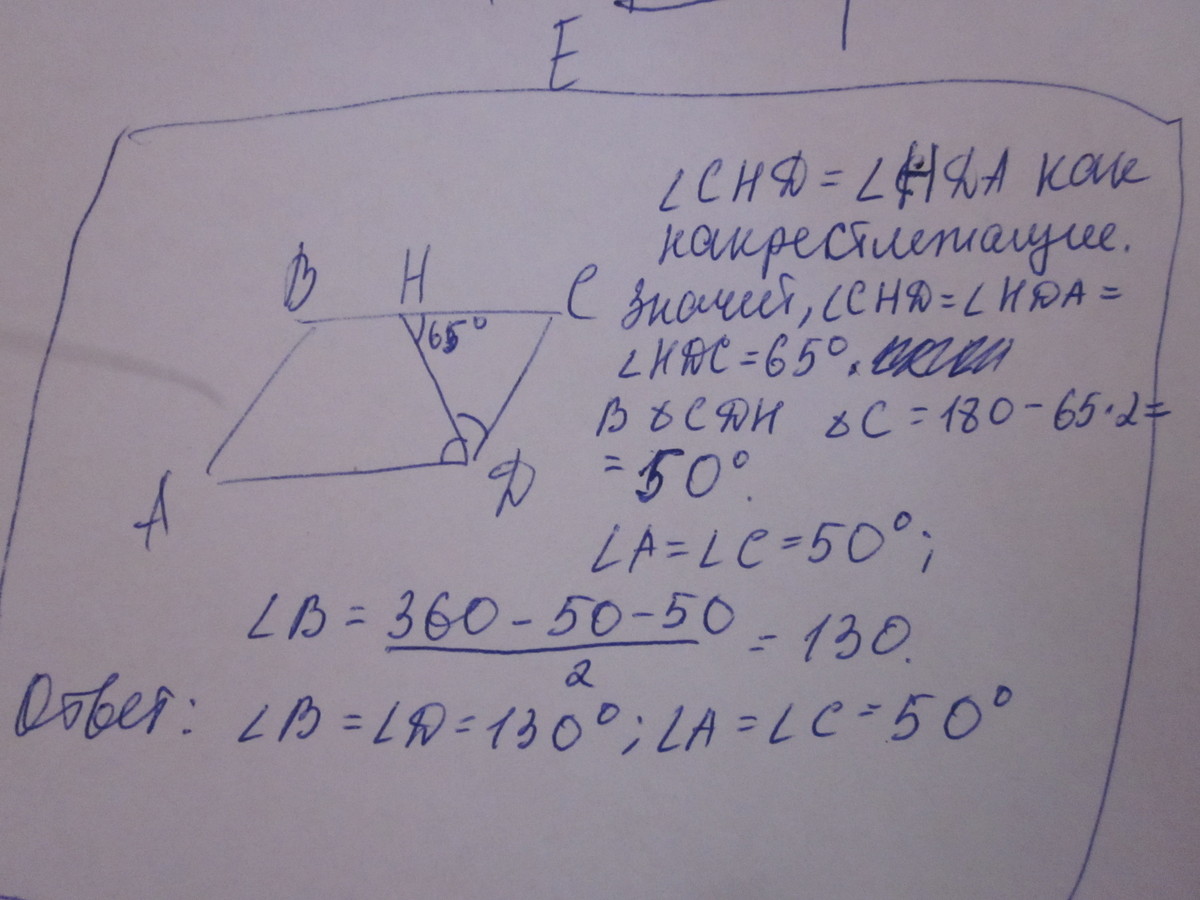 E
∠CHD = ∠HDA как
накрестлежащие.
B H C
65°
A D
Значит, ∠CHD = ∠HDA =
∠HDC = 65°.
В △CDH ∠C = 180 - 65·2 =
= 50°.
∠A = ∠C = 50°;
∠B = (360 - 50 - 50)/2 = 130.
Ответ: ∠B = ∠D = 130°; ∠A = ∠C = 50°